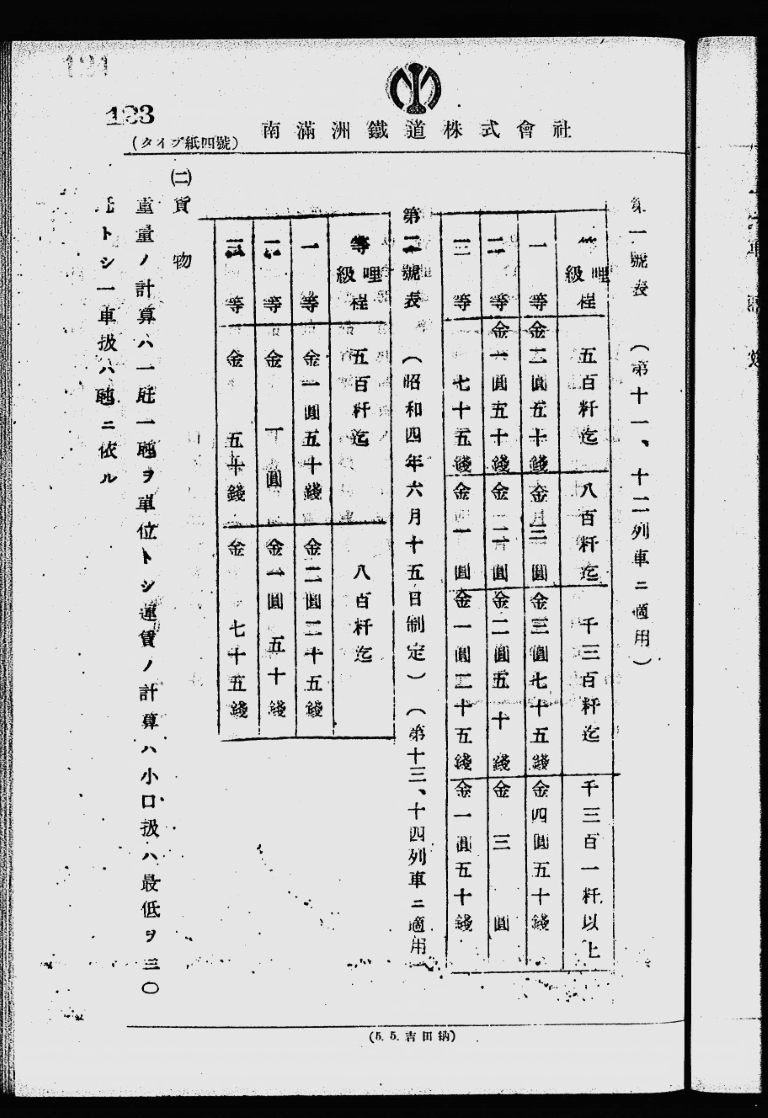 123
(タイプ紙四號)
南滿洲鐵道株式會社
第一號表 (第十一、十二列車ニ適用)
等級 哩程 五百粁迄 八百粁迄 千三百粁迄 千三百一粁以上
一等 金二圓五十錢 金三圓 金三圓七十五錢 金四圓五十錢
二等 金一圓五十錢 金二圓 金二圓五十錢 金三圓
三等 七十五錢 金一圓 金一圓二十五錢 金一圓五十錢
第二號表 (昭和四年六月十五日制定) (第十三、十四列車ニ適用
等級 哩程 五百粁迄 八百粁迄
一等 金一圓五十錢 金二圓二十五錢
二等 金一圓 金一圓五十錢
三等 金五十錢 金七十五錢
(二)貨物
重量ノ計算ハ一瓲一瓲ヲ單位トシ運賃ノ計算ハ小口扱ハ最低ヲ三〇
瓩トシ一車扱ハ瓲ニ依ル
(5. 5. 吉田納)